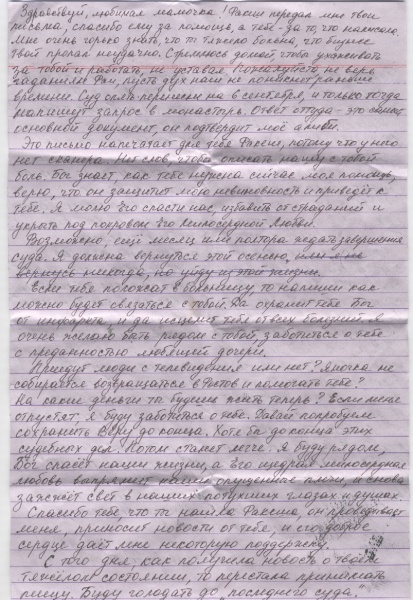 Здравствуй, любимая мамочка! Раким передал мне твои
письма, спасибо ему за помощь, а тебе - за то, что написала.
Мне очень горько знать, что ты тяжело больна, что бизнес
твой пропал неудачно. Стремлюся домой чтобы ухаживать
за тобой и работать не уставая. Пожалуйста не верь
гаданиям Рам, пусть дух наш не понизится раньше
времени. Суд опять перенесли на 6 сентября, и только тогда
напишут запрос в монастырь. Ответ оттуда - это самый
основной документ, он подтвердит моё алиби.
Это письмо напечатает для тебя Раким, потому что у него
нет сканера. Нет слов, чтобы описать нашу с тобой
боль. Бог знает, как тебе нужна сейчас моя помощь,
верю, что он защитит мою невиновность и приведёт к
тебе. Я молю Его спасти нас, избавить от страданий и
укрыть под покровом Его Милосердной Любви.
Возможно, ещё месяц или полтора ждать завершения
суда. Я должна вернуться этой осенью, или я не
вернусь никогда, но уйду из этой жизни.
Если тебя положат в больницу то напиши как
можно будет связаться с тобой. Да охранит тебя Бог
от инфаркта, и да исцелит тебя от всех болезней я
очень желаю быть рядом с тобой, заботиться о тебе
с преданностью любящей дочери.
Приедут люди с телевидения или нет? Яночка не
собирается возвращаться в Ростов и помогать тебе?
На какие деньги ты будешь жить теперь? Если меня
отпустят, я буду заботиться о тебе. Давай попробуем
сохранить Веру до конца. Хотя бы до конца этих
судебных дел. Потом станет легче. Я буду рядом,
Бог спасёт наши жизни, а Его щедрая милосердная
любовь выпрямит наши опущенные плечи, и снова
зажжёт свет в наших потухших глазах и душах.
Спасибо тебе что ты нашла Ракима, он проведывает
меня, приносит новости от тебе, и его доброе
сердце даёт мне некоторую поддержку.
С того дня, как получила новость о твоём
тяжёлом состоянии, то перестала принимать
пищу. Буду голодать до последнего суда.